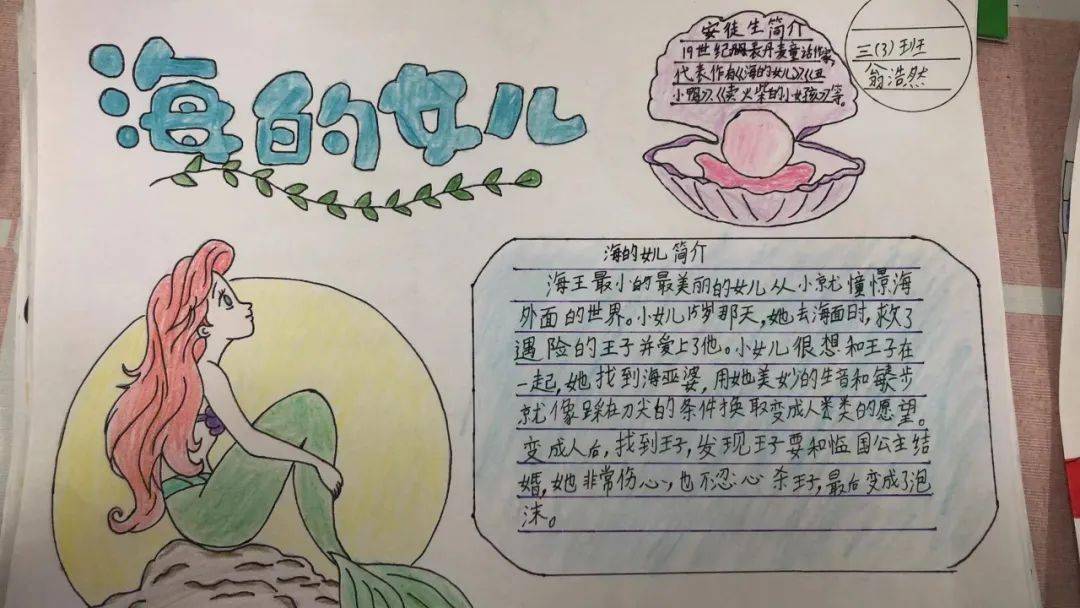 海的女儿
安徒生简介
19世纪丹麦童话作家,
代表作有《海的女儿》《丑
小鸭》《卖火柴的小女孩》等。
三(3)班
翁浩然
海的女儿简介
海王最小的最美丽的女儿从小就憧憬海
外面的世界。小女儿15岁那天,她去海面时,救了
遇险的王子并爱上了他。小女儿很想和王子在
一起,她找到海巫婆,用她美妙的声音和每步
就像踩在刀尖的条件换取变成人类的愿望。
变成人后,找到王子,发现王子要和临国公主结
婚,她非常伤心,也不忍心杀王子,最后变成了泡
沫。